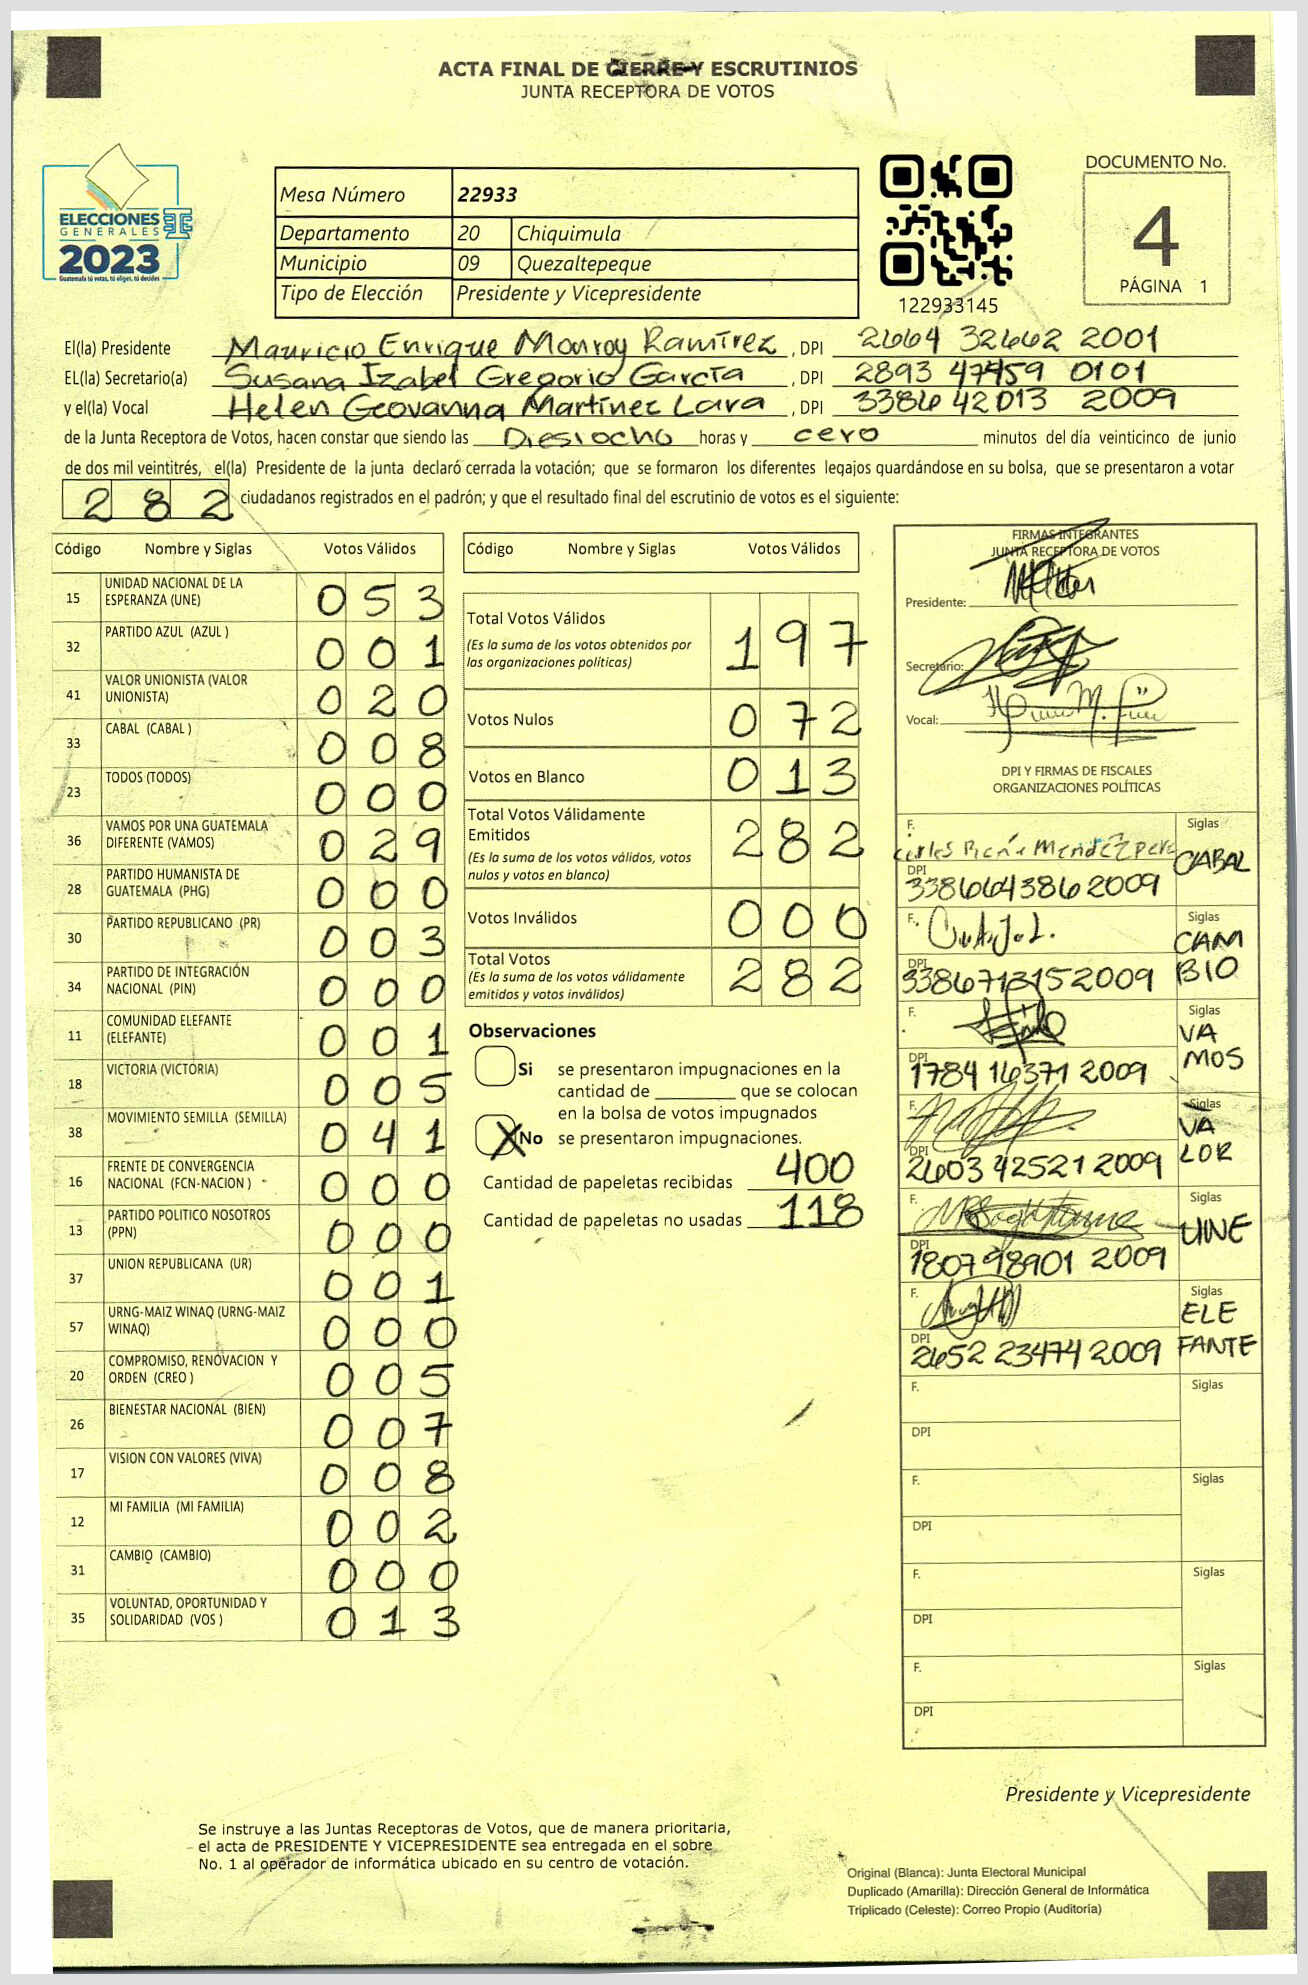 ACTA FINAL DE CIERRE Y ESCRUTINIOS
JUNTA RECEPTORA DE VOTOS
ELECCIONES
GENERALES
2023
Guatemala tú votas, tú eliges, tú decides
Mesa Número 22933
Departamento 20 Chiquimula
Municipio 09 Quezaltepeque
Tipo de Elección Presidente y Vicepresidente
122933145
DOCUMENTO No.
4
PÁGINA 1
El(la) Presidente Mauricio Enrique Monroy Ramírez, DPI 2664 32662 2001
EL(la) Secretario(a) Susana Izabel Gregorio García, DPI 2893 47459 0101
y el(la) Vocal Helen Geovanna Martínez Lara, DPI 3386 42013 2009
de la Junta Receptora de Votos, hacen constar que siendo las Diesiocho horas y cero minutos del día veinticinco de junio
de dos mil veintitrés, el(la) Presidente de la junta declaró cerrada la votación; que se formaron los diferentes legajos guardándose en su bolsa, que se presentaron a votar
282 ciudadanos registrados en el padrón; y que el resultado final del escrutinio de votos es el siguiente:
Código Nombre y Siglas Votos Válidos
15 UNIDAD NACIONAL DE LA ESPERANZA (UNE) 053
32 PARTIDO AZUL (AZUL ) 001
41 VALOR UNIONISTA (VALOR UNIONISTA) 020
33 CABAL (CABAL ) 008
23 TODOS (TODOS) 000
36 VAMOS POR UNA GUATEMALA DIFERENTE (VAMOS) 029
28 PARTIDO HUMANISTA DE GUATEMALA (PHG) 000
30 PARTIDO REPUBLICANO (PR) 003
34 PARTIDO DE INTEGRACIÓN NACIONAL (PIN) 000
11 COMUNIDAD ELEFANTE (ELEFANTE) 001
18 VICTORIA (VICTORIA) 005
38 MOVIMIENTO SEMILLA (SEMILLA) 041
16 FRENTE DE CONVERGENCIA NACIONAL (FCN-NACION ) 000
13 PARTIDO POLITICO NOSOTROS (PPN) 000
37 UNION REPUBLICANA (UR) 001
57 URNG-MAIZ WINAQ (URNG-MAIZ WINAQ) 000
20 COMPROMISO, RENOVACION Y ORDEN (CREO ) 005
26 BIENESTAR NACIONAL (BIEN) 007
17 VISION CON VALORES (VIVA) 008
12 MI FAMILIA (MI FAMILIA) 002
31 CAMBIO (CAMBIO) 000
35 VOLUNTAD, OPORTUNIDAD Y SOLIDARIDAD (VOS ) 013
Código Nombre y Siglas Votos Válidos
Total Votos Válidos 197
(Es la suma de los votos obtenidos por
las organizaciones políticas)
Votos Nulos 072
Votos en Blanco 013
Total Votos Válidamente
Emitidos 282
(Es la suma de los votos válidos, votos
nulos y votos en blanco)
Votos Inválidos 000
Total Votos 282
(Es la suma de los votos válidamente
emitidos y votos inválidos)
Observaciones
Si se presentaron impugnaciones en la
cantidad de ________ que se colocan
en la bolsa de votos impugnados
X No se presentaron impugnaciones.
Cantidad de papeletas recibidas 400
Cantidad de papeletas no usadas 118
FIRMAS INTEGRANTES
JUNTA RECEPTORA DE VOTOS
Presidente:
Secretario:
Vocal:
DPI Y FIRMAS DE FISCALES
ORGANIZACIONES POLÍTICAS
F. Siglas
CABAL
DPI 338664386 2009
F. Siglas
CAMBIO
DPI 3386713152009
F. Siglas
VAMOS
DPI 1784 16371 2009
F. Siglas
VALOR
DPI 2603 42521 2009
F. Siglas
UNE
DPI 1807 98901 2009
F. Siglas
ELEFANTE
DPI 2652 23474 2009
F. Siglas
DPI
F. Siglas
DPI
F. Siglas
DPI
F. Siglas
DPI
Presidente y Vicepresidente
Se instruye a las Juntas Receptoras de Votos, que de manera prioritaria,
el acta de PRESIDENTE Y VICEPRESIDENTE sea entregada en el sobre
No. 1 al operador de informática ubicado en su centro de votación.
Original (Blanca): Junta Electoral Municipal
Duplicado (Amarilla): Dirección General de Informática
Triplicado (Celeste): Correo Propio (Auditoría)